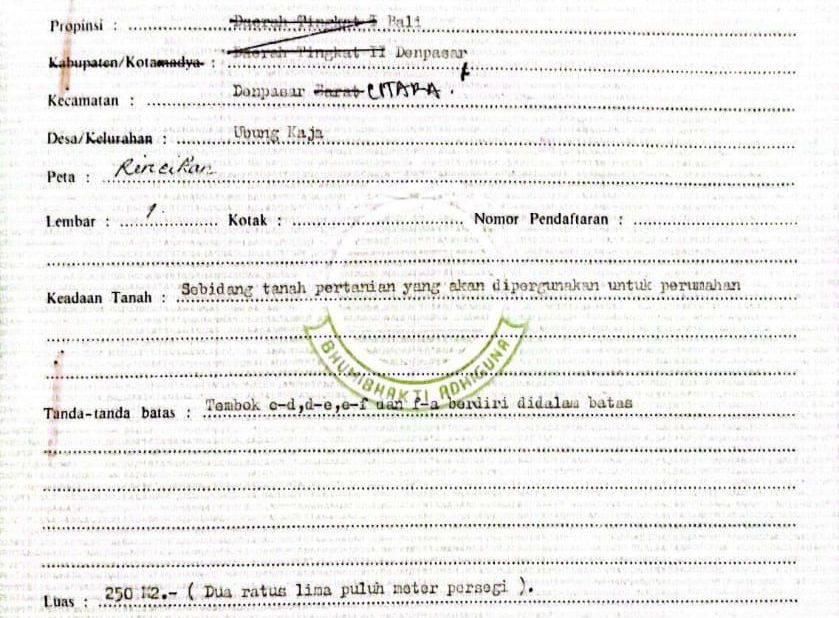 Propinsi : Daerah Tingkat I Bali
Kabupaten/Kotamadya : Daerah Tingkat II Denpasar
Kecamatan : Denpasar Barat UTARA.
Desa/Kelurahan : Ubung Kaja
Peta : Rincikan
Lembar : 1 Kotak : Nomor Pendaftaran :
Keadaan Tanah : Sebidang tanah pertanian yang akan dipergunakan untuk perumahan
BHUMIBHAKTI ADHIGUNA
Tanda-tanda batas : Tembok c-d,d-e,e-f dan f-a berdiri didalam batas
Luas : 250 M2.- ( Dua ratus lima puluh meter persegi ).